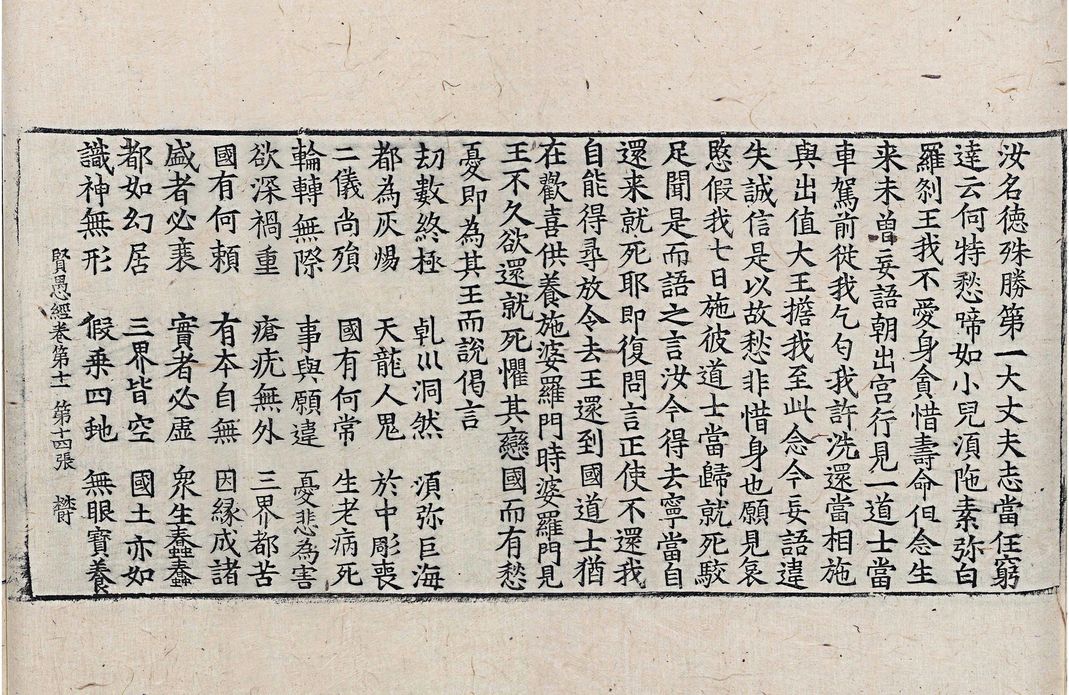 汝名德殊勝第一大丈夫志當任窮
達云何特愁啼如小兒湏陁素弥白
羅刹王我不愛身貪惜壽命但念生
来未曽妄語朝出宫行見一道士當
車駕前從我乞匃我許洗還當相施
與出值大王擔我至此念今妄語違
失誠信是以故愁非惜身也願見哀
愍假我七日施彼道士當歸就死駮
足聞是而語之言汝今得去寧當自
還来就死耶即復問言正使不還我
自能得尋放令去王還到國道士猶
在歡喜供養施婆羅門時婆羅門見
王不久欲還就死懼其戀國而有愁
憂即為其王而說偈言
劫數終極　乹巛洞然　湏弥巨海
都為灰煬　天龍人鬼　於中彫喪
二儀尚殞　國有何常　生老病死
輪轉無際　事與願違　憂悲為害
欲深禍重　瘡疣無外　三界都苦
國有何頼　有本自無　因縁成諸
盛者必衰　實者必虛　衆生蠢蠢
都如幻居　三界皆空　國土亦如
識神無形　假乗四虵　無眼寳養
賢愚經卷第十一　第十四張